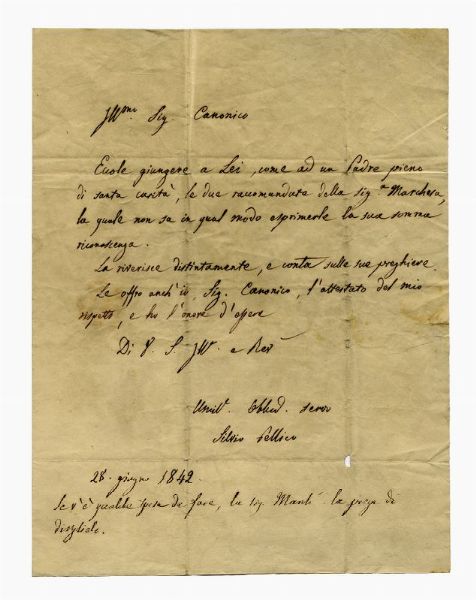 Illmo. Sig Canonico
Ecole giungere a Lei, come ad un Padre pieno
di santa carità, le due raccomandate della Sig.ª Marchesa,
la quale non sa in qual modo esprimerle la sua somma
riconoscenza.
La riverisce distintamente, e conta sulle sue preghiere.
Le offro anch'io, Sig. Canonico, l'attestato del mio
rispetto, e ho l'onore d'essere
Di V. S. Ill. e Rev
Umil. Obbed. servo
Silvio Pellico
28. giugno 1842.
Se v'è qualche spesa da fare, la sig. March. la prega di
dirglielo.